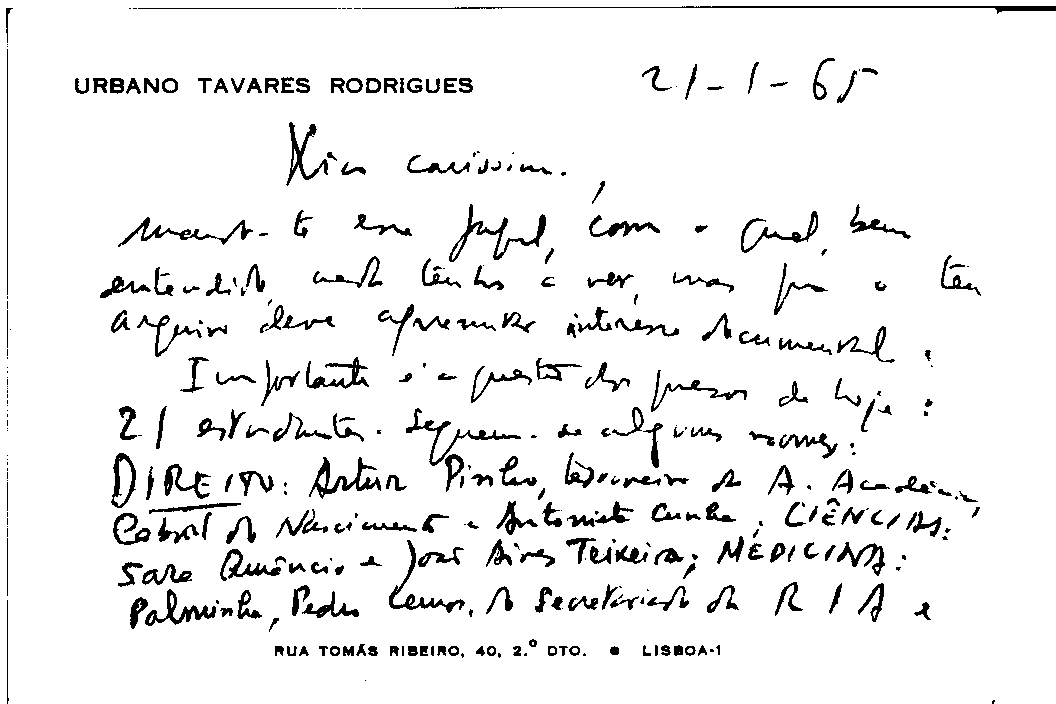 URBANO TAVARES RODRIGUES
21-1-65
caríssimo,
mando-te esse papel, com o qual, bem
entendido, nada tenho a ver, mas pra o teu
arquivo deve apresentar interesse documental.
Importante é a questão dos presos de hoje:
21 estudantes. Seguem-se alguns nomes:
DIREITO: Artur Pinho, tesoureiro da A. Académica,
Cabral do Nascimento e Antonieta Cunha; CIÊNCIAS:
Sara Amâncio e João Aires Teixeira; MEDICINA:
Palminha, Pedro Lemos, do Secretariado da R I A e
RUA TOMÁS RIBEIRO, 40, 2.º DTO. • LISBOA-1